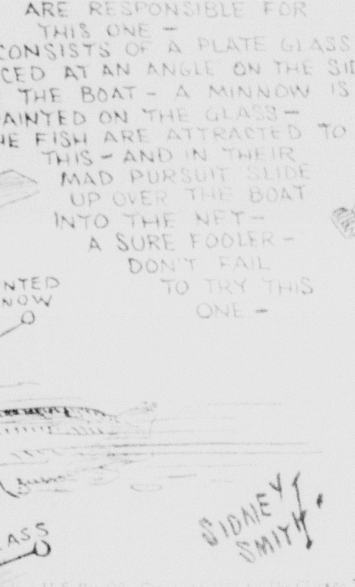 ARE RESPONSIBLE FOR
THIS ONE –
CONSISTS OF A PLATE GLASS
CED AT AN ANGLE ON THE SID
THE BOAT – A MINNOW IS
AINTED ON THE GLASS –
HE FISH ARE ATTRACTED TO
THIS – AND IN THEIR
MAD PURSUIT SLIDE
UP OVER THE BOAT
INTO THE NET –
A SURE FOOLER –
DON'T FAIL
TO TRY THIS
ONE –
NTED
NOW
ASS
SIDNEY
SMITH.